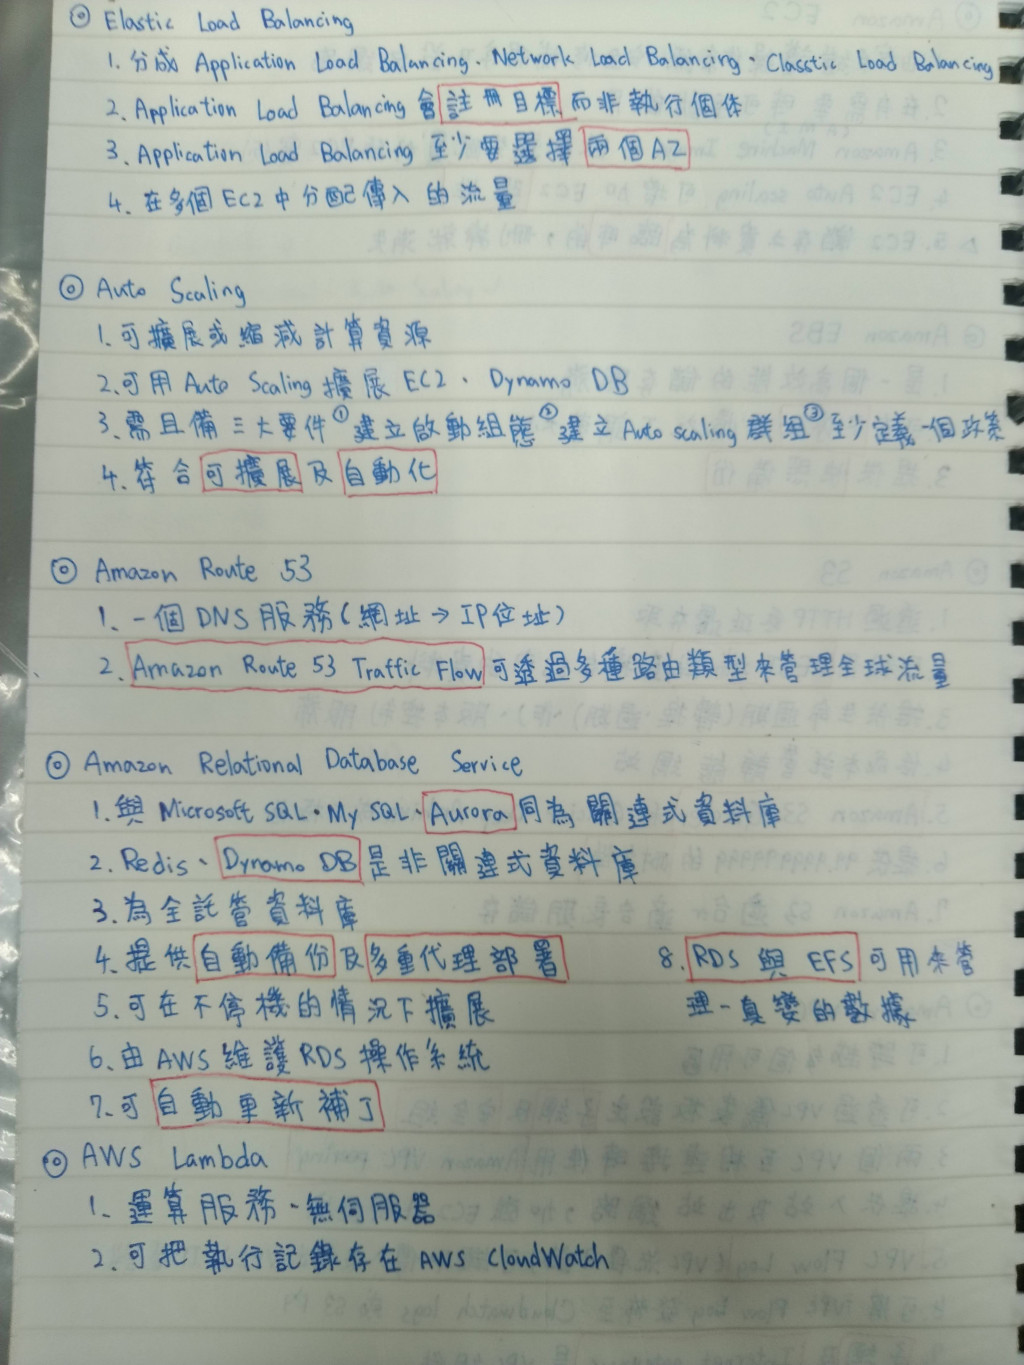 ◎ Elastic Load Balancing
1. 分成 Application Load Balancing、Network Load Balancing、Classtic Load Balancing
2. Application Load Balancing 會註冊目標而非執行個体
3. Application Load Balancing 至少要選擇兩個AZ
4. 在多個EC2中分配傳入的流量
◎ Auto Scaling
1. 可擴展或縮減計算資源
2. 可用 Auto Scaling 擴展 EC2、Dynamo DB
3. 需具備三大要件①建立啟動組態②建立Auto scaling 群組③至少定義一個政策
4. 符合可擴展及自動化
◎ Amazon Route 53
1. 一個DNS服務(網址→IP位址)
2. Amazon Route 53 Traffic Flow可透過多種路由類型來管理全球流量
◎ Amazon Relational Database Service
1. 與 Microsoft SQL、My SQL、Aurora 同為關連式資料庫
2. Redis、Dynamo DB 是非關連式資料庫
3. 為全託管資料庫
4. 提供自動備份及多重代理部署
5. 可在不停機的情況下擴展
6. 由AWS維護RDS操作系統
7. 可自動更新補丁
8. RDS 與 EFS 可用來管
理一直變的數據
◎ AWS Lambda
1. 運算服務、無伺服器
2. 可把執行記錄存在 AWS CloudWatch